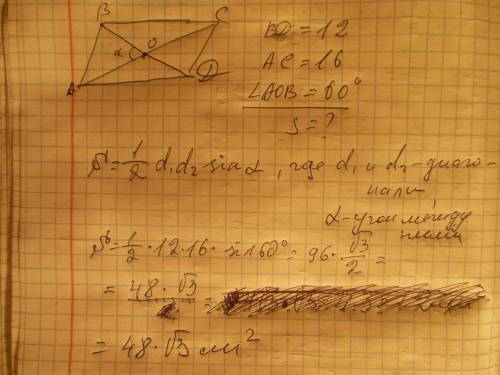 B C
α O
A D
BD = 12
AC = 16
∠AOB = 60°
S = ?
S = 1/2 d₁d₂ sin α, где d₁ и d₂ - диаго-
нали,
α - угол между
ними
S = 1/2 · 12 · 16 · sin 60° = 96 · √3/2 =
= 48 · √3 =
= 48 · √3 см²